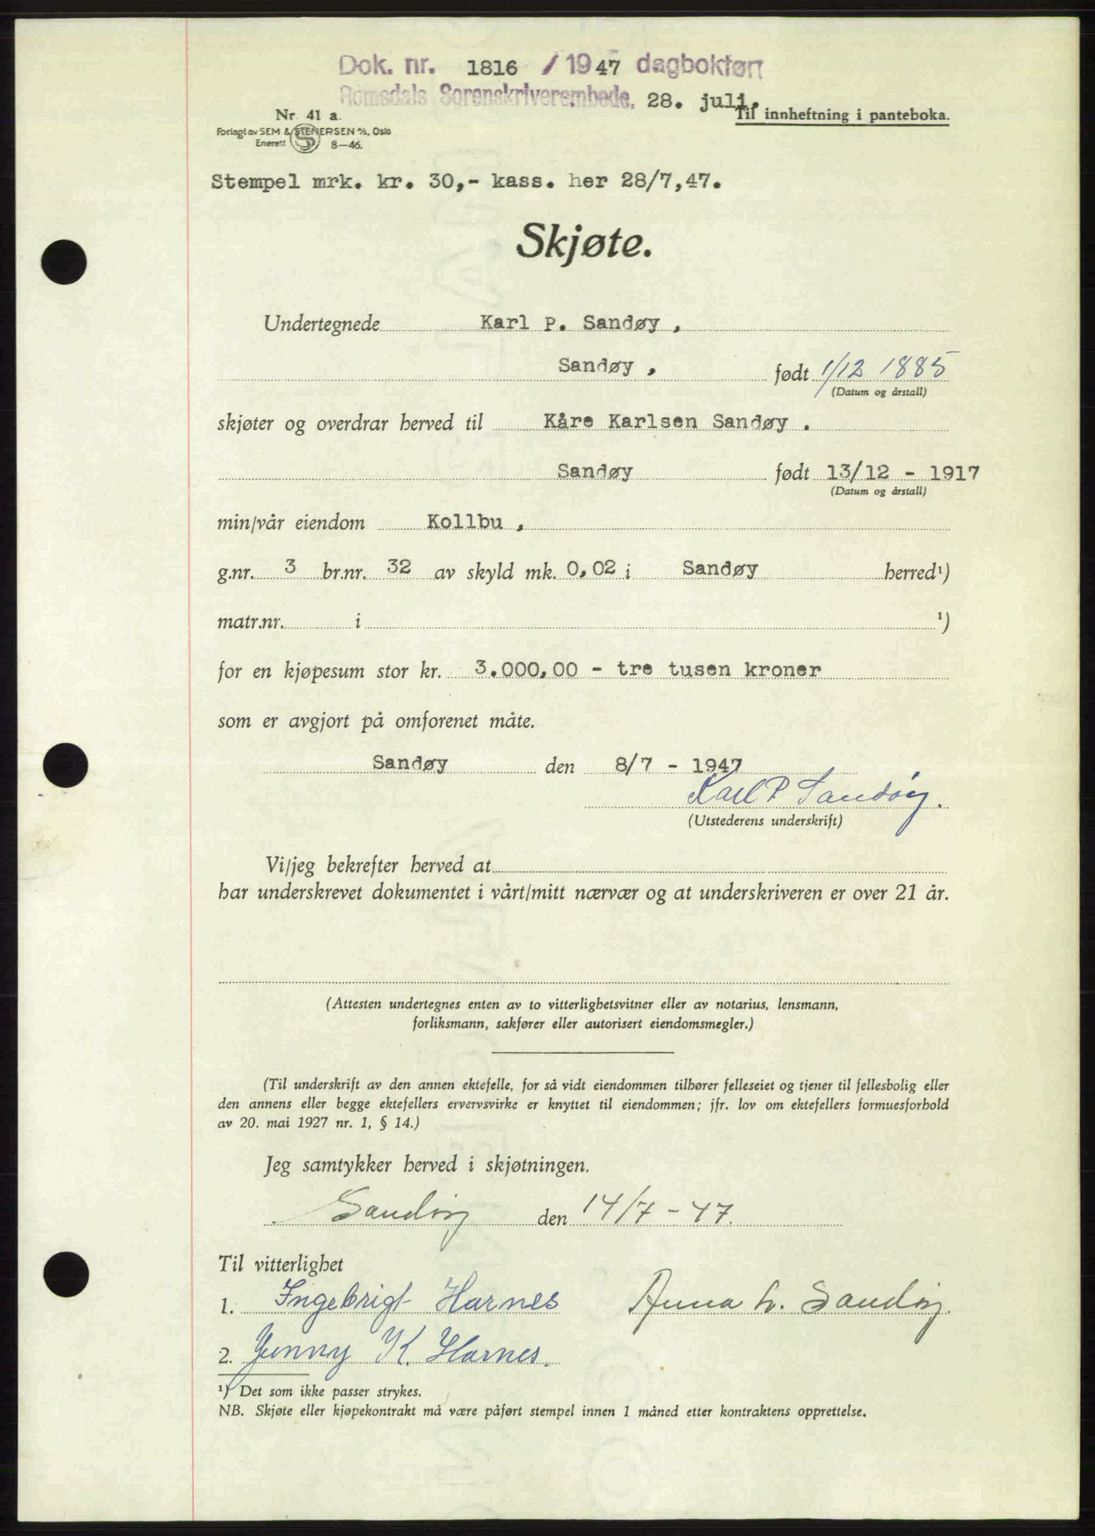 Dok. nr. 1816 / 1947 dagbokført
Romsdals Sorenskriverembede. 28. juli.
Nr. 41 a.
Til innheftning i panteboka.
Forlagt av SEM & STENERSEN A/S, Oslo
Enerett S 8—46.
Stempel mrk. kr. 30,- kass. her 28/7,47.
Skjøte.
Undertegnede Karl P. Sandøy ,
Sandøy , født 1/12 1885
(Datum og årstall)
skjøter og overdrar herved til Kåre Karlsen Sandøy .
Sandøy født 13/12 - 1917
(Datum og årstall)
min/vår eiendom Kollbu ,
g.nr. 3 br.nr. 32 av skyld mk. 0,02 i Sandøy herred¹)
matr.nr. i ¹)
for en kjøpesum stor kr. 3.000,00 - tre tusen kroner
som er avgjort på omforenet måte.
Sandøy den 8/7 - 1947
Karl P Sandøy.
(Utstederens underskrift)
Vi/jeg bekrefter herved at
har underskrevet dokumentet i vårt/mitt nærvær og at underskriveren er over 21 år.
(Attesten undertegnes enten av to vitterlighetsvitner eller av notarius, lensmann,
forliksmann, sakfører eller autorisert eiendomsmegler.)
(Til underskrift av den annen ektefelle, for så vidt eiendommen tilhører felleseiet og tjener til fellesbolig eller
den annens eller begge ektefellers ervervsvirke er knyttet til eiendommen; jfr. lov om ektefellers formuesforhold
av 20. mai 1927 nr. 1, § 14.)
Jeg samtykker herved i skjøtningen.
Sandøy den 14/7 - 47.
Til vitterlighet
1. Ingebrigt Harnes Anna L. Sandøy.
2. Jenny K. Harnes.
¹) Det som ikke passer strykes.
NB. Skjøte eller kjøpekontrakt må være påført stempel innen 1 måned etter kontraktens opprettelse.